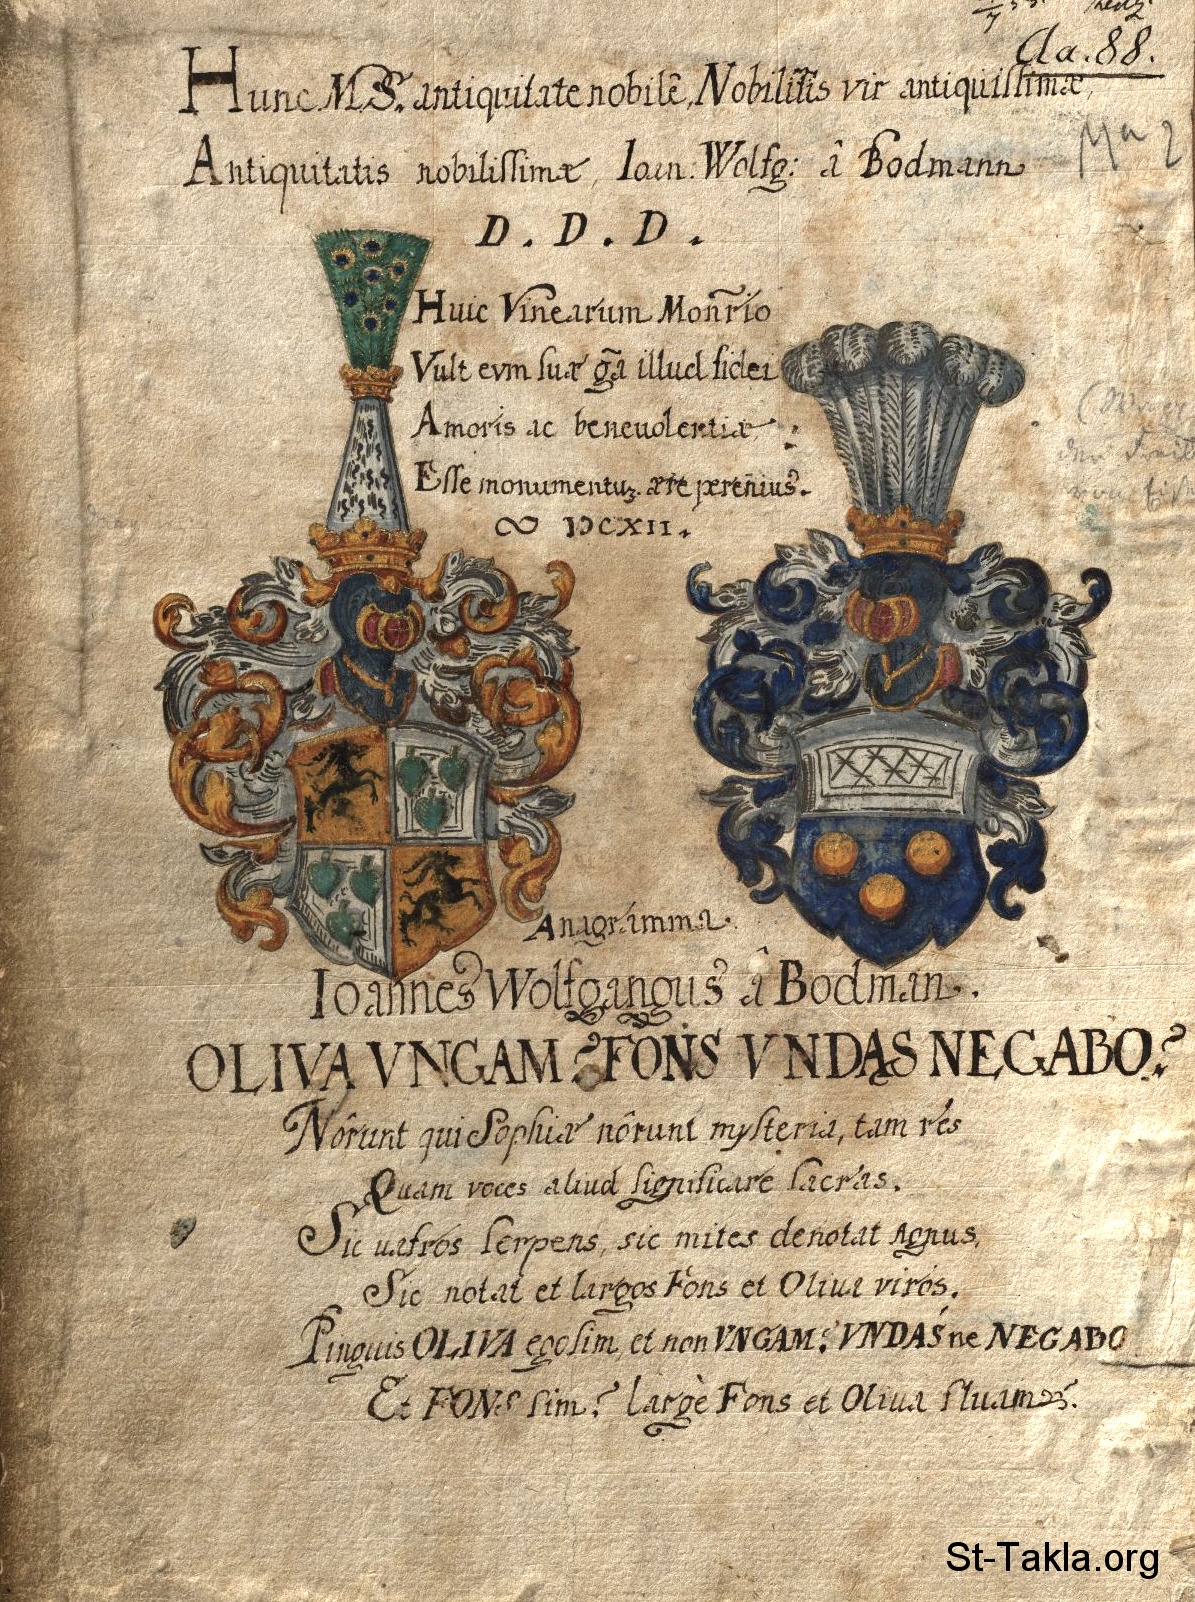 Aa.88.
Hunc MS. antiquitate nobilē, Nobilit̄is vir antiquissimæ,
Antiquitatis nobilissimæ, Ioan: Wolfg: â Bodmann
D. D. D.
Huic Vinearum Mon̄rio
Vult eum suæ ḡa illud fidei
Amoris ac beneuolentiæ
Esse monumentuꝫ ære pereñius.
∞ DCXII.
Anagramma.
Ioannes Wolfgangus â Bodman.
OLIVA VNGAM? FONS VNDAS NEGABO?
Nôrunt qui Sophiæ nôrunt mysteria, tam res
Quam voces aliud significare sacras.
Sic uafros serpens, sic mites denotat Agnus,
Sic notat et largos Fons et Oliua viros.
Pinguis OLIVA ego sim, et non VNGAM? VNDAS ne NEGABO
Et FONS sim? largè Fons et Oliua fluam.
St-Takla.org